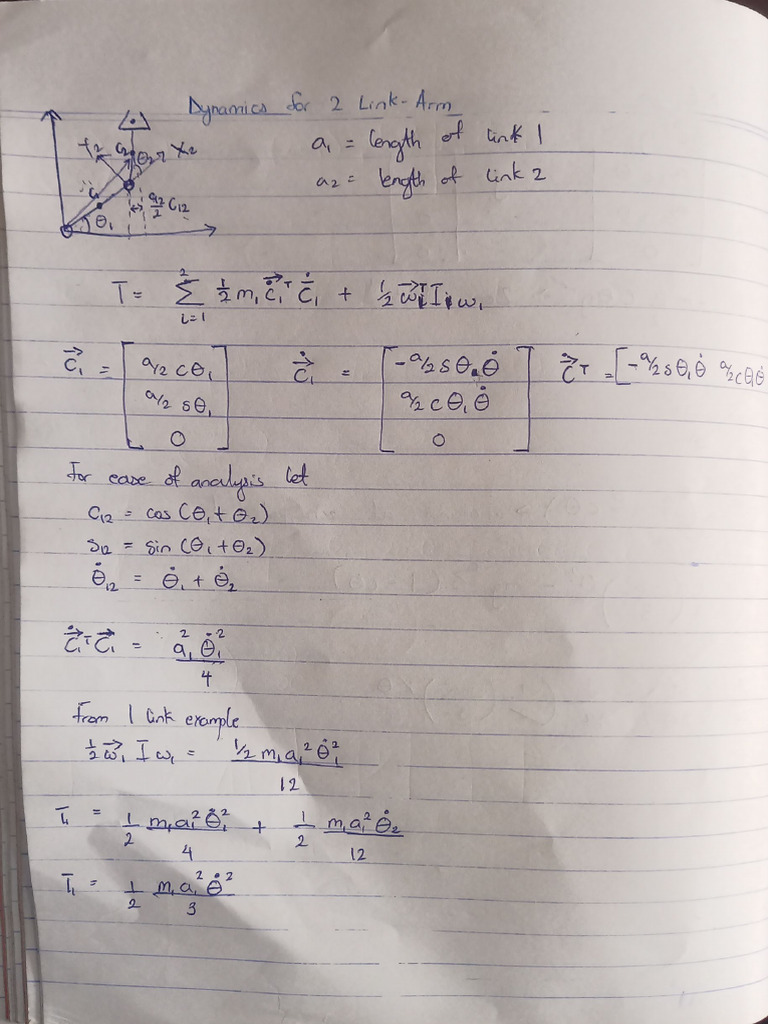 Dynamics for 2 Link-Arm
a₁ = length of link 1
a₂ = length of link 2
Y₂ C₂ θ₂ X₂
C₁ θ₁ a₂/2 C₁₂
T = Σ_{i=1}^{2} ½ m₁ ċ₁ᵀ ċ₁ + ½ ω₁ᵀ I₁ ω₁
c₁ = [a/2 cθ₁; a/2 sθ₁; 0] ċ₁ = [-a/2 sθ₁ θ̇; a/2 cθ₁ θ̇; 0] ċᵀ = [-a/2 sθ₁ θ̇ a/2 cθ₁ θ̇
For ease of analysis let
C₁₂ = cos (θ₁ + θ₂)
S₁₂ = sin (θ₁ + θ₂)
θ̇₁₂ = θ̇₁ + θ̇₂
ċ₁ᵀ c₁ = a₁² θ̇₁² / 4
From 1 link example
½ ω₁ I ω₁ = ½ m₁ a₁² θ̇₁² / 12
T₁ = 1/2 m₁ a₁² θ̇₁² / 4 + 1/2 m₁ a₁² θ̇₂ / 12
T₁ = 1/2 m₁ a₁² θ̇² / 3